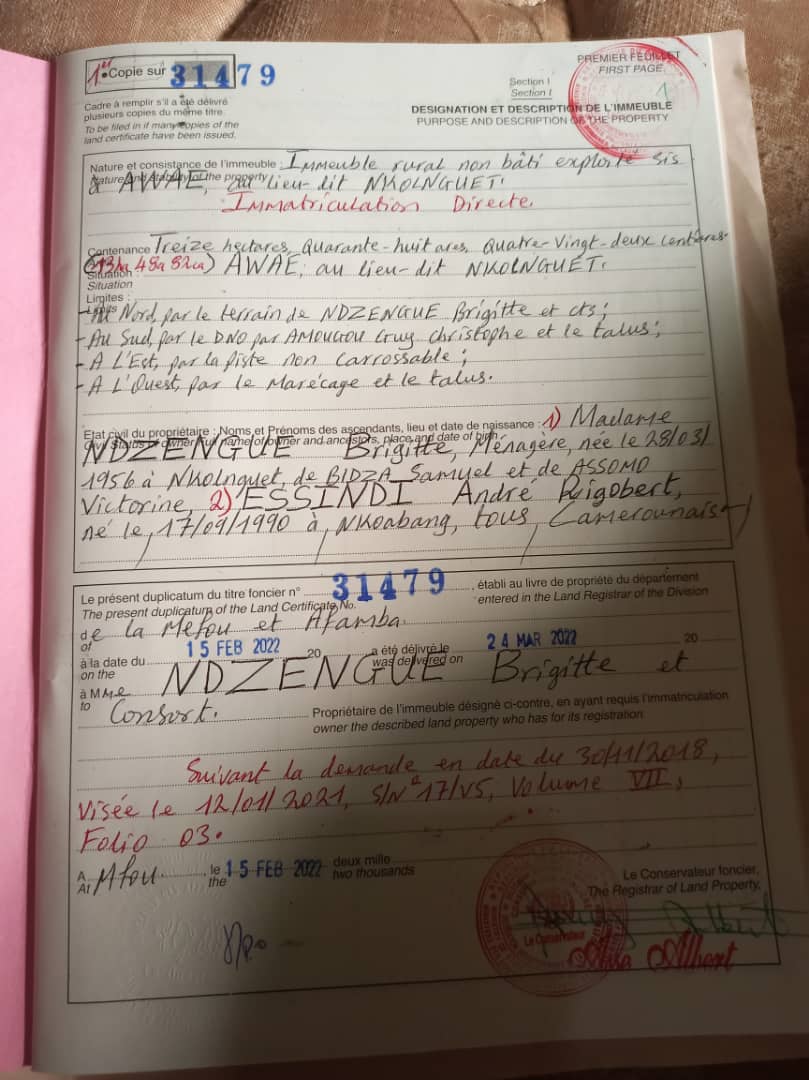 1er Copie sur 31479
PREMIER FEUILLET
FIRST PAGE
1
Section I
Section I
Cadre à remplir s'il a été délivré
plusieurs copies du même titre.
To be filed in if many copies of the
land certificate have been issued.
DESIGNATION ET DESCRIPTION DE L'IMMEUBLE
PURPOSE AND DESCRIPTION OF THE PROPERTY
Nature et consistance de l'immeuble : Immeuble rural non bâti exploité sis
Nature and of the property
à AWAE, au lieu-dit NKOLNGUET.
Immatriculation Directe.
Contenance Treize hectares, Quarante-huit ares, Quatre-Vingt-deux centiares.
(13ha 48a 82ca) AWAE, au lieu-dit NKOLNGUET.
Situation :
Situation
Limites :
Limits
- Au Nord, par le terrain de NDZENGUE Brigitte et cts ;
- Au Sud, par le DNO par AMOUGOU Guy Christophe et le talus ;
- A L'Est, par la piste non Carrossable ;
- A L'Ouest, par le Marécage et le talus.
Etat civil du propriétaire : Noms et Prénoms des ascendants, lieu et date de naissance : 1) Madame
Civil Status of owner Full name of owner and ancestors, place and date of birth
NDZENGUE Brigitte, Ménagère, née le 28/03/
1956 à Nkolnguet, de BIDZA Samuel et de ASSOMO
Victorine, 2) ESSINDI André Rigobert,
né le, 17/09/1990 à, Nkoabang, tous Camerounais
Le présent duplicatum du titre foncier n° 31479, établi au livre de propriété du département
The present duplicatum of the Land Certificate No. entered in the Land Registrar of the Division
de la Mefou et Afamba.
of
à la date du 15 FEB 2022 20 a été délivré le 24 MAR 2022 20
on the was delivered on
à Mme NDZENGUE Brigitte et
to
Consort. Propriétaire de l'immeuble désigné ci-contre, en ayant requis l'immatriculation
owner the described land property who has for its registration
Suivant la demande en date du 30/11/2018,
Visée le 12/01/2021, S/N° 17/V5, Volume VII,
Folio 03.
A Mfou. le 15 FEB 2022 deux mille
At the two thousands
Le Conservateur foncier,
The Registrar of Land Property,
Le Conservateur
Albert